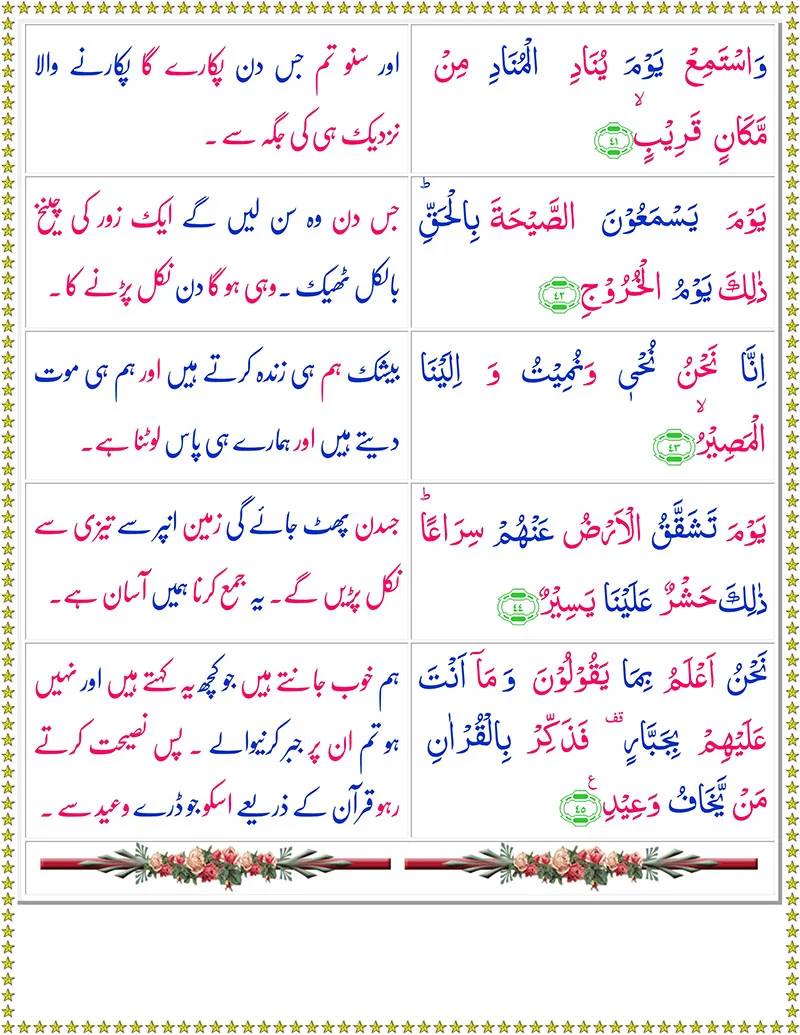 وَاسْتَمِعْ يَوْمَ يُنَادِ الْمُنَادِ مِنْ
مَّكَانٍ قَرِيْبٍۙ ۴۱
اور سنو تم جس دن پکارے گا پکارنے والا
نزدیک ہی کی جگہ سے ۔
يَوْمَ يَسْمَعُوْنَ الصَّيْحَةَ بِالْحَقِّؕ
ذٰلِكَ يَوْمُ الْخُرُوْجِ ۴۲
جس دن وہ سن لیں گے ایک زور کی چیخ
بالکل ٹھیک ۔ وہی ہو گا دن نکل پڑنے کا ۔
اِنَّا نَحْنُ نُحْیٖ وَنُمِيْتُ وَ اِلَيْنَا
الْمَصِيْرُۙ ۴۳
بیشک ہم ہی زندہ کرتے ہیں اور ہم ہی موت
دیتے ہیں اور ہمارے ہی پاس لوٹنا ہے۔
يَوْمَ تَشَقَّقُ الْاَرْضُ عَنْهُمْ سِرَاعًاؕ
ذٰلِكَ حَشْرٌ عَلَيْنَا يَسِيْرٌ ۴۴
جسدن پھٹ جائے گی زمین انپر سے تیزی سے
نکل پڑیں گے۔ یہ جمع کرنا ہمیں آسان ہے۔
نَحْنُ اَعْلَمُ بِمَا يَقُوْلُوْنَ وَ مَاۤ اَنْتَ
عَلَيْهِمْ بِجَبَّارٍ قف فَذَكِّرْ بِالْقُرْاٰنِ
مَنْ يَّخَافُ وَعِيْدِ ع ۴۵
ہم خوب جانتے ہیں جو کچھ یہ کہتے ہیں اور نہیں
ہو تم ان پر جبر کرنیوالے ۔ پس نصیحت کرتے
رہو قرآن کے ذریعے اسکو جو ڈرے وعید سے ۔